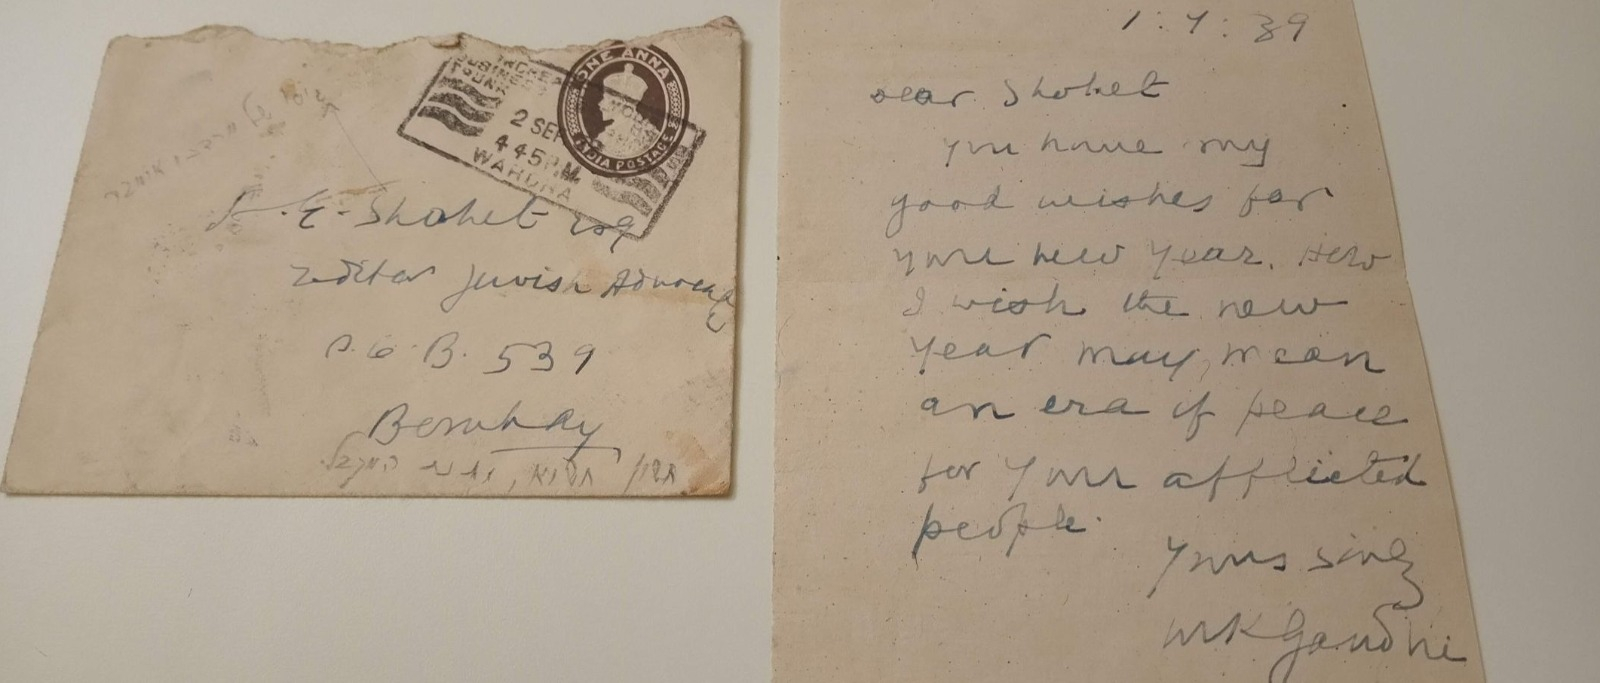 ONE ANNA
INDIA POSTAGE
2 SEP
4 45 PM
WARDHA
A. E. Shohet Esq
Editor Jewish Advocate
P. O. B. 539
Bombay
1 : 9 : 39
Dear Shohet
You have my
good wishes for
your new year. How
I wish the new
year may mean
an era of peace
for your afflicted
people.
Yours sincly
MKGandhi